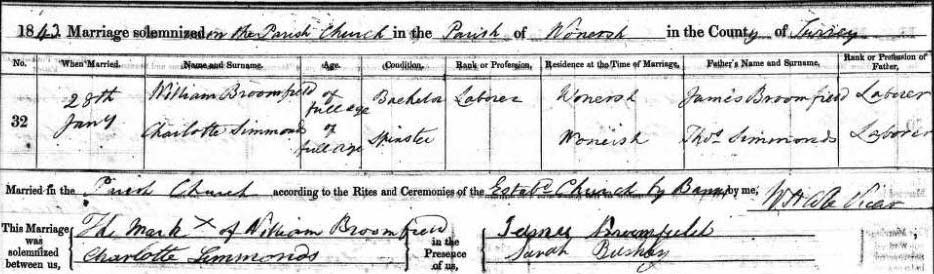 1843. Marriage solemnized in the Parish Church in the Parish of Wonersh in the County of Surrey
No. When Married. Name and Surname. Age. Condition. Rank or Profession. Residence at the Time of Marriage. Father's Name and Surname. Rank or Profession of Father.
32 28th Jany William Broomfield of full age Bachelor Laborer Wonersh James Broomfield Laborer
Charlotte Simmonds of full age Spinster Wonersh Thos. Simmonds Laborer
Married in the Parish Church according to the Rites and Ceremonies of the Estabd. Church by Banns by me, Vicar
This Marriage was solemnized between us, The Mark X of William Broomfield
Charlotte Simmonds
in the Presence of us, James Broomfield
Sarah